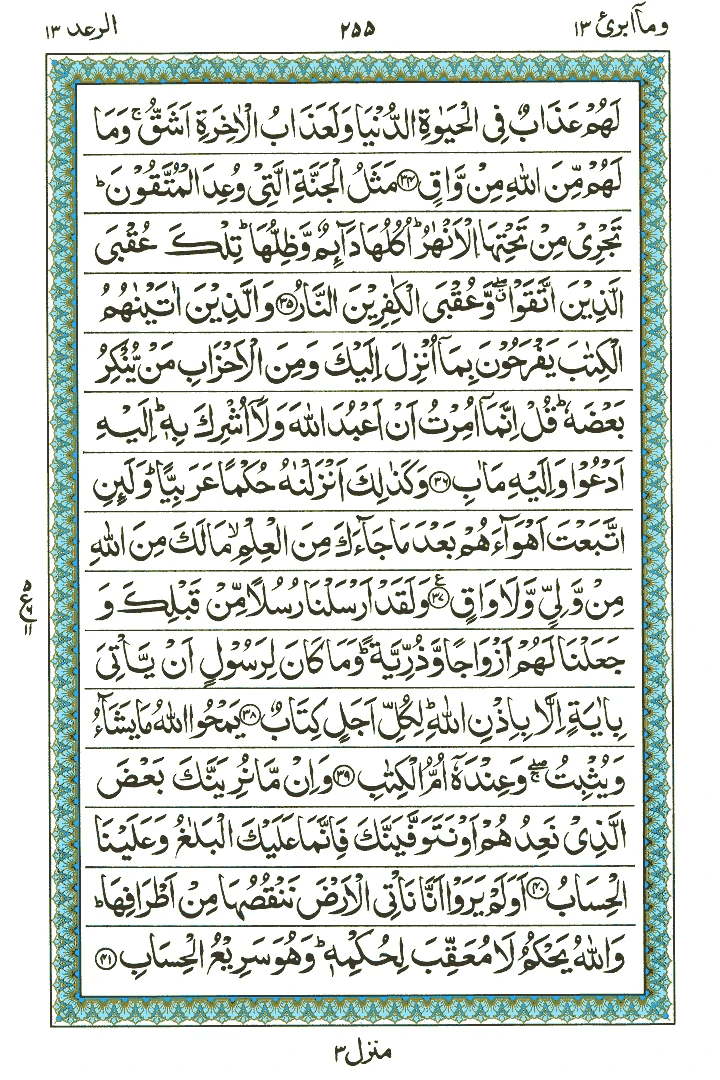 وماۤابرئ ١٣ ٢٥٥ الرعد ١٣
لَهُمْ عَذَابٌ فِى الْحَيٰوةِ الدُّنْيَا وَلَعَذَابُ الْاٰخِرَةِ اَشَقُّ ۚ وَمَا
لَهُمْ مِّنَ اللّٰهِ مِنْ وَّاقٍ ﴿٣٤﴾ مَثَلُ الْجَنَّةِ الَّتِىْ وُعِدَ الْمُتَّقُوْنَ ؕ
تَجْرِىْ مِنْ تَحْتِهَا الْاَنْهٰرُ ؕ اُكُلُهَا دَآئِمٌ وَّظِلُّهَا ؕ تِلْكَ عُقْبَى
الَّذِيْنَ اتَّقَوْا ۖ وَّعُقْبَى الْكٰفِرِيْنَ النَّارُ ﴿٣٥﴾ وَالَّذِيْنَ اٰتَيْنٰهُمُ
الْكِتٰبَ يَفْرَحُوْنَ بِمَاۤ اُنْزِلَ اِلَيْكَ وَمِنَ الْاَحْزَابِ مَنْ يُّنْكِرُ
بَعْضَهٗ ؕ قُلْ اِنَّمَاۤ اُمِرْتُ اَنْ اَعْبُدَ اللّٰهَ وَلَاۤ اُشْرِكَ بِهٖ ؕ اِلَيْهِ
اَدْعُوْا وَاِلَيْهِ مَاٰبِ ﴿٣٦﴾ وَكَذٰلِكَ اَنْزَلْنٰهُ حُكْمًا عَرَبِيًّا ؕ وَلَئِنِ
اتَّبَعْتَ اَهْوَآءَهُمْ بَعْدَ مَا جَآءَكَ مِنَ الْعِلْمِ ۙ مَا لَكَ مِنَ اللّٰهِ
مِنْ وَّلِىٍّ وَّلَا وَاقٍ ﴿٣٧﴾ ع وَلَقَدْ اَرْسَلْنَا رُسُلًا مِّنْ قَبْلِكَ وَ
٥ ع ١١
جَعَلْنَا لَهُمْ اَزْوَاجًا وَّذُرِّيَّةً ؕ وَمَا كَانَ لِرَسُوْلٍ اَنْ يَّاْتِىَ
بِاٰيَةٍ اِلَّا بِاِذْنِ اللّٰهِ ؕ لِكُلِّ اَجَلٍ كِتَابٌ ﴿٣٨﴾ يَمْحُوا اللّٰهُ مَا يَشَآءُ
وَيُثْبِتُ ۖۚ وَعِنْدَهٗۤ اُمُّ الْكِتٰبِ ﴿٣٩﴾ وَاِنْ مَّا نُرِيَنَّكَ بَعْضَ
الَّذِىْ نَعِدُهُمْ اَوْ نَتَوَفَّيَنَّكَ فَاِنَّمَا عَلَيْكَ الْبَلٰغُ وَعَلَيْنَا
الْحِسَابُ ﴿٤٠﴾ اَوَلَمْ يَرَوْا اَنَّا نَاْتِى الْاَرْضَ نَنْقُصُهَا مِنْ اَطْرَافِهَا ؕ
وَاللّٰهُ يَحْكُمُ لَا مُعَقِّبَ لِحُكْمِهٖ ؕ وَهُوَ سَرِيْعُ الْحِسَابِ ﴿٤١﴾
منزل ٣